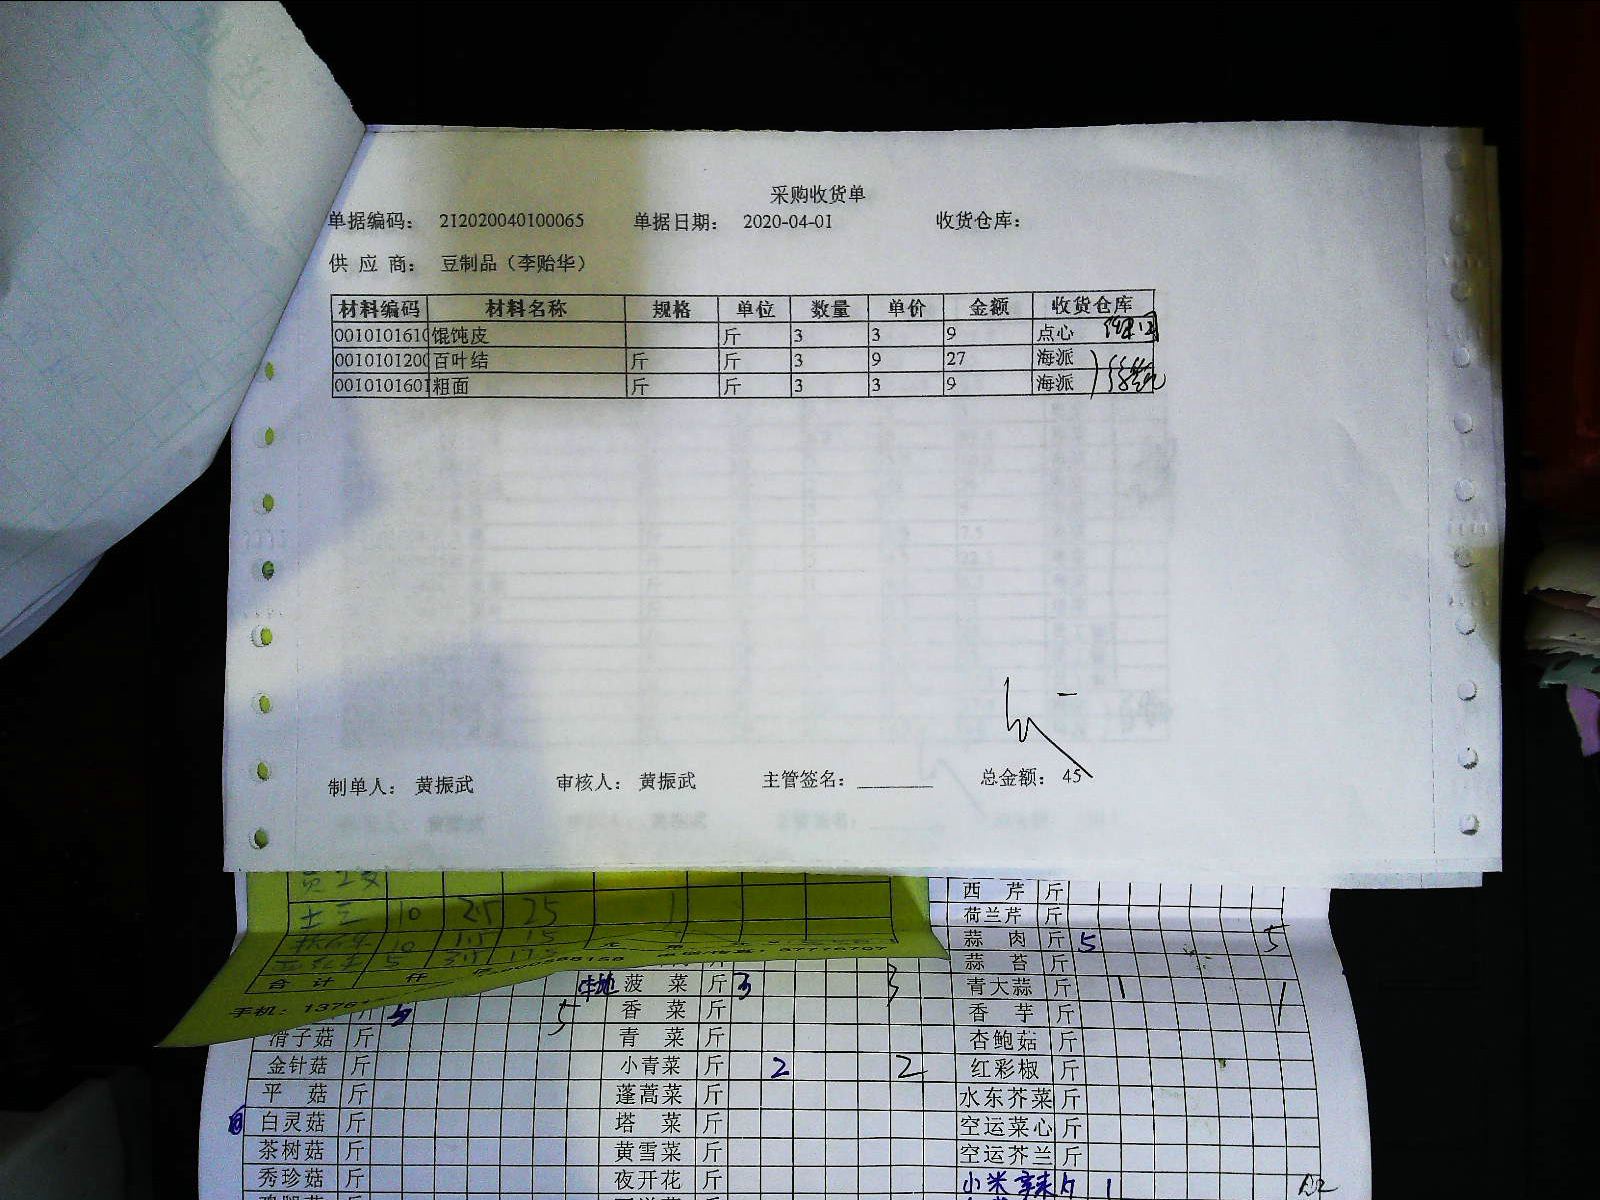 采购收货单
单据编码： 212020040100065 单据日期： 2020-04-01 收货仓库：
供 应 商： 豆制品（李贻华）
材料编码 材料名称 规格 单位 数量 单价 金额 收货仓库
0010101610 馄饨皮 斤 3 3 9 点心
0010101200 百叶结 斤 斤 3 9 27 海派
0010101601 粗面 斤 斤 3 3 9 海派
制单人： 黄振武 审核人： 黄振武 主管签名： 总金额： 45
西 芹 斤
土豆 10 2.5 25 荷兰芹 斤
10 1.5 15 蒜 肉 斤 5 5
5 3.5 17.5 蒜 苔 斤
合 计 仟 本地 菠 菜 斤 3 3 青大蒜 斤 1 1
手机：1376 5 5 香 菜 斤 香 芋 斤
滑子菇 斤 青 菜 斤 杏鲍菇 斤
金针菇 斤 小青菜 斤 2 2 红彩椒 斤
平 菇 斤 蓬蒿菜 斤 水东芥菜 斤
白灵菇 斤 塔 菜 斤 空运菜心 斤
茶树菇 斤 黄雪菜 斤 空运芥兰 斤
秀珍菇 斤 夜开花 斤 小米辣 斤 1